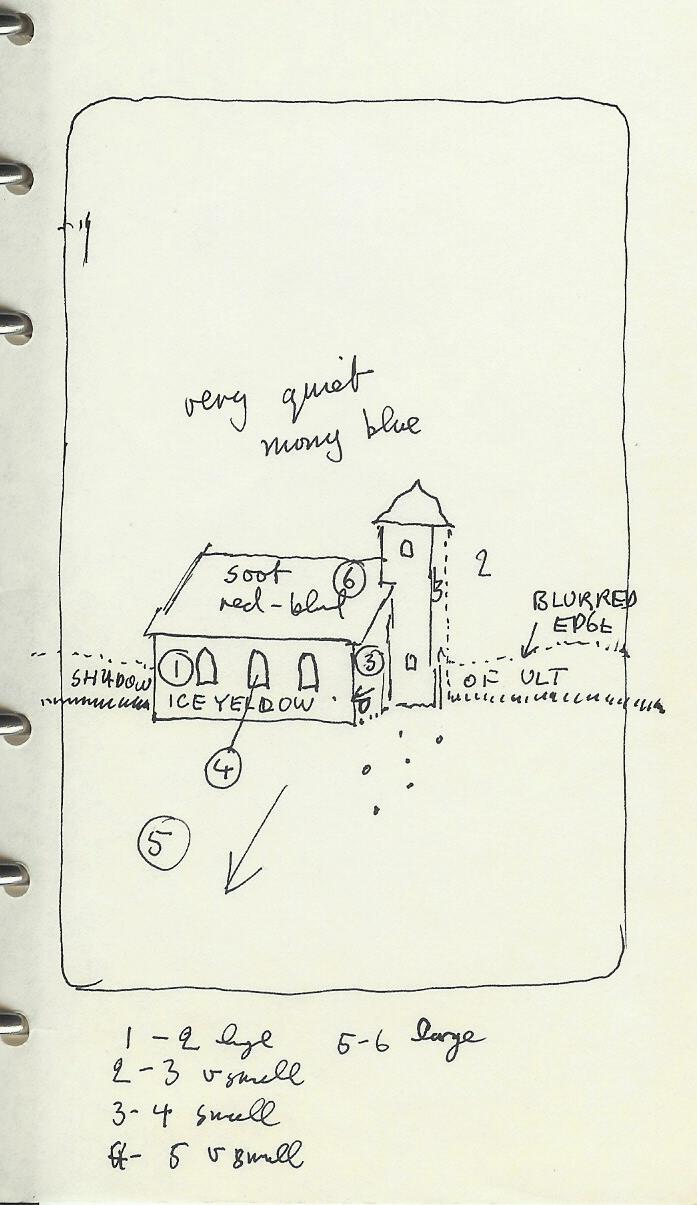 very quiet
mony blue
2
soot 6
red-blue
3
BLURRED
EDGE
SHADOW 1 3 OF ULT
ICE YELLOW
4
5
1 - 2 large 5-6 large
2 - 3 v small
3- 4 small
4- 5 v small